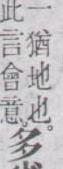 一猶地也。
此言會意。多